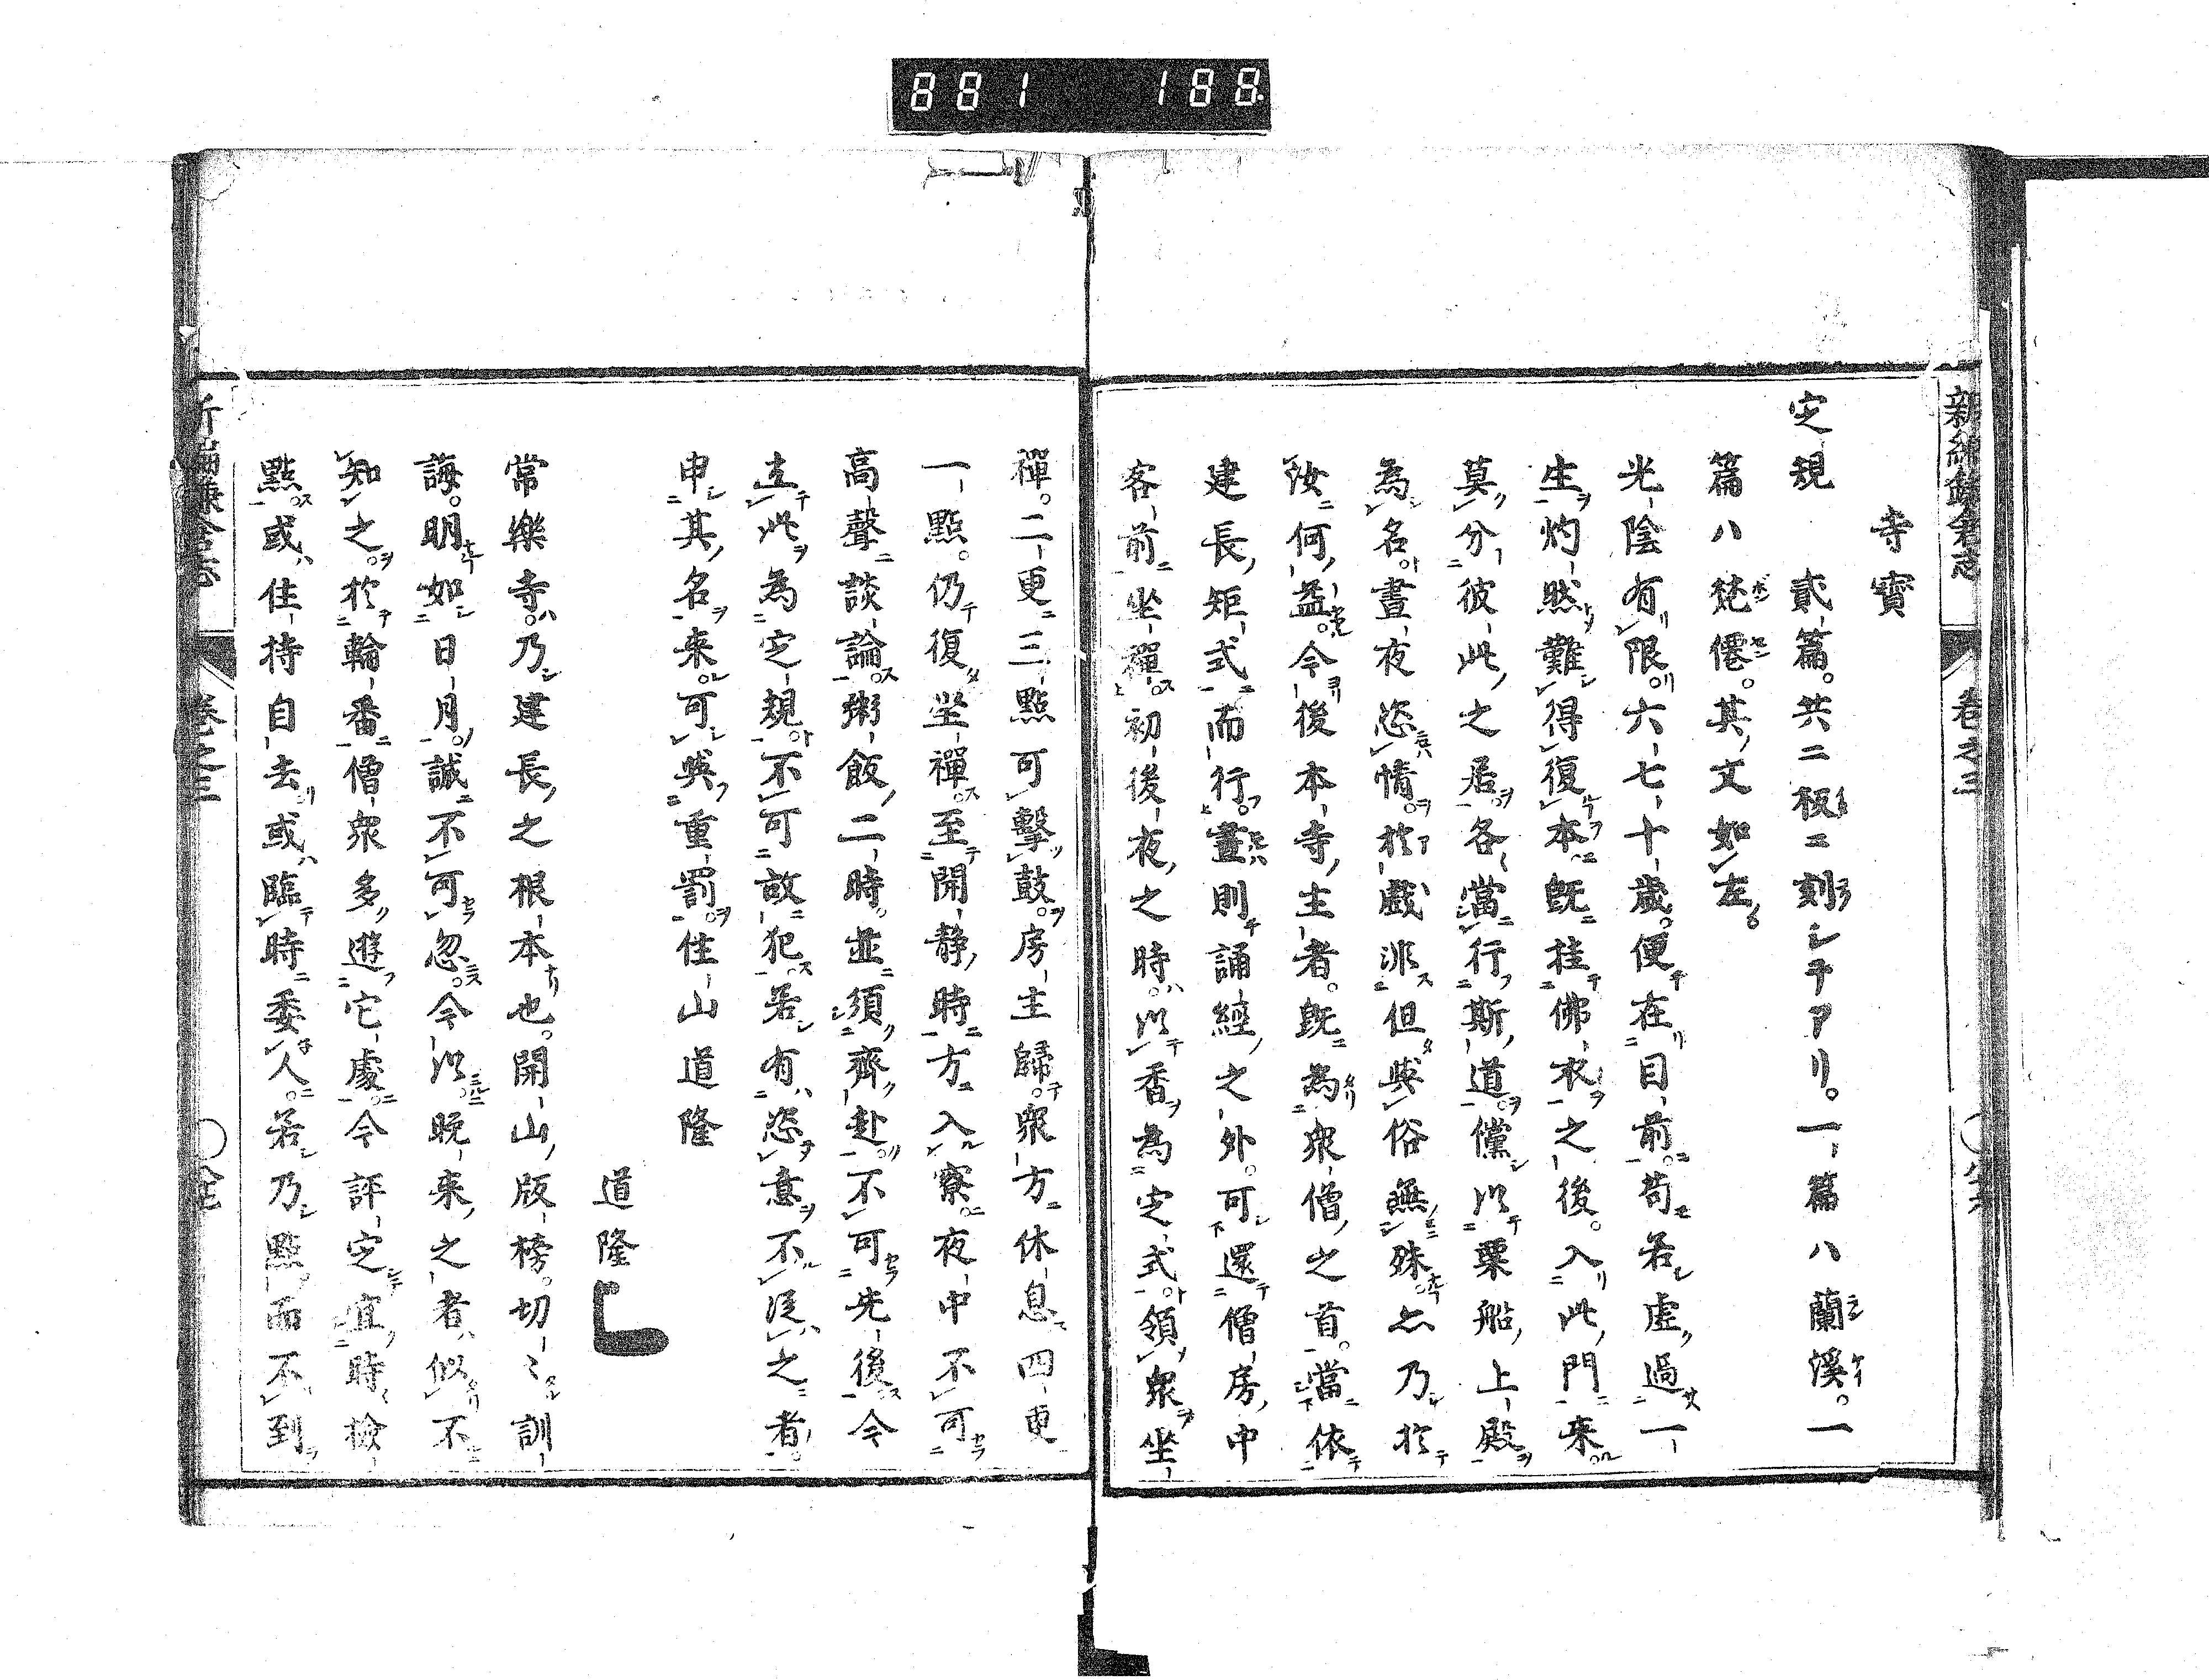 881 188
新編鎌倉志 卷之三
寺寳
定規 貳篇。共二板ニ刻シテアリ。一篇ハ蘭溪。一
篇ハ梵僊。其文如左
光陰有限。六七十歳。便在目前。苟若虚過一
生。灼然難得復本。既挂佛衣之後。入此門来。
莫分彼此之居。各當行斯道。儻以粟船上殿
為名。晝夜恣情。於戲非但與俗無殊。亦乃於
汝何益。今後本寺主者。既為衆僧之首。當依
建長矩式而行。晝則誦經之外。可還僧房中
客前坐禪。初後夜之時。以香為定式。領衆坐
禪。二更三點可擊鼓。房主歸。衆方休息。四更
一點。仍復坐禪。至開静時方入寮。夜中不可
高聲談論。粥飯二時。並須齊赴。不可先後。今
立此為定規。不可故犯。若有恣意不従之者。
申其名来。可與重罰。住山道隆
道隆
常樂寺。乃建長之根本也。開山版榜。切〻訓
誨。明如日月。誠不可忽。今以晩来之者似不
知之。於輪番僧衆多遊它處。今評定。宜時檢
點。或住持自去。或臨時委人。若乃點而不到
新編鎌倉志 卷之三